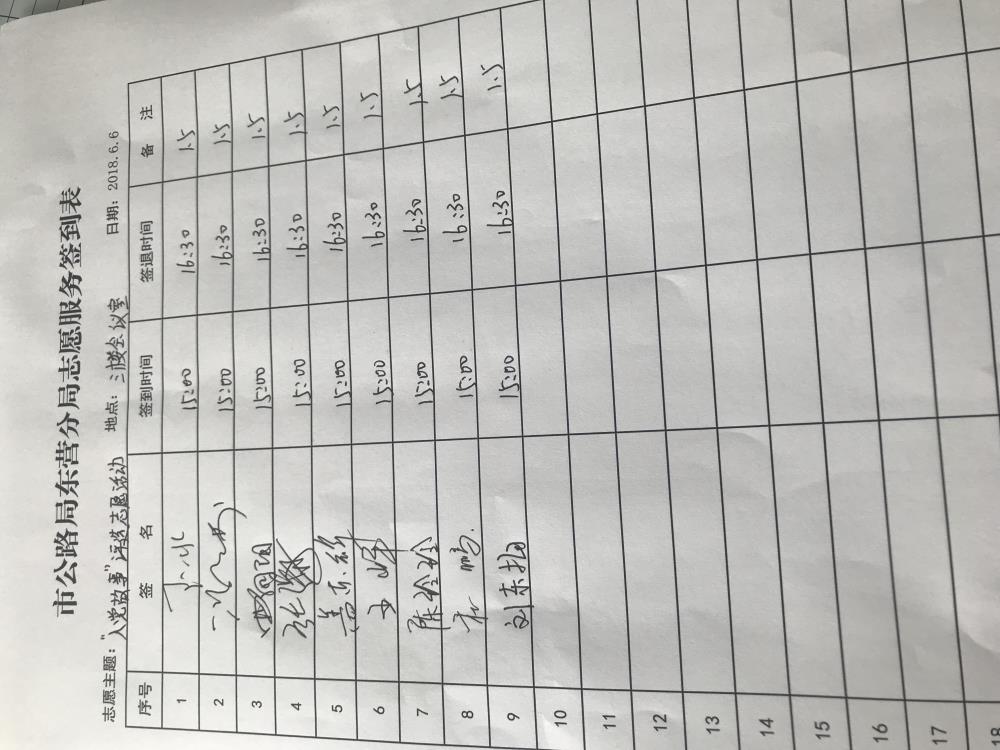 市公路局东营分局志愿服务签到表
志愿主题：“入党故事”评选志愿活动 地点：三楼会议室 日期：2018.6.6
序号 签名 签到时间 签退时间 备注
1 15:00 16:30 1.5
2 15:00 16:30 1.5
3 15:00 16:30 1.5
4 15:00 16:30 1.5
5 15:00 16:30 1.5
6 15:00 16:30 1.5
7 陈玲玲 15:00 16:30 1.5
8 15:00 16:30 1.5
9 刘东 15:00 16:30 1.5
10
11
12
13
14
15
16
17
18